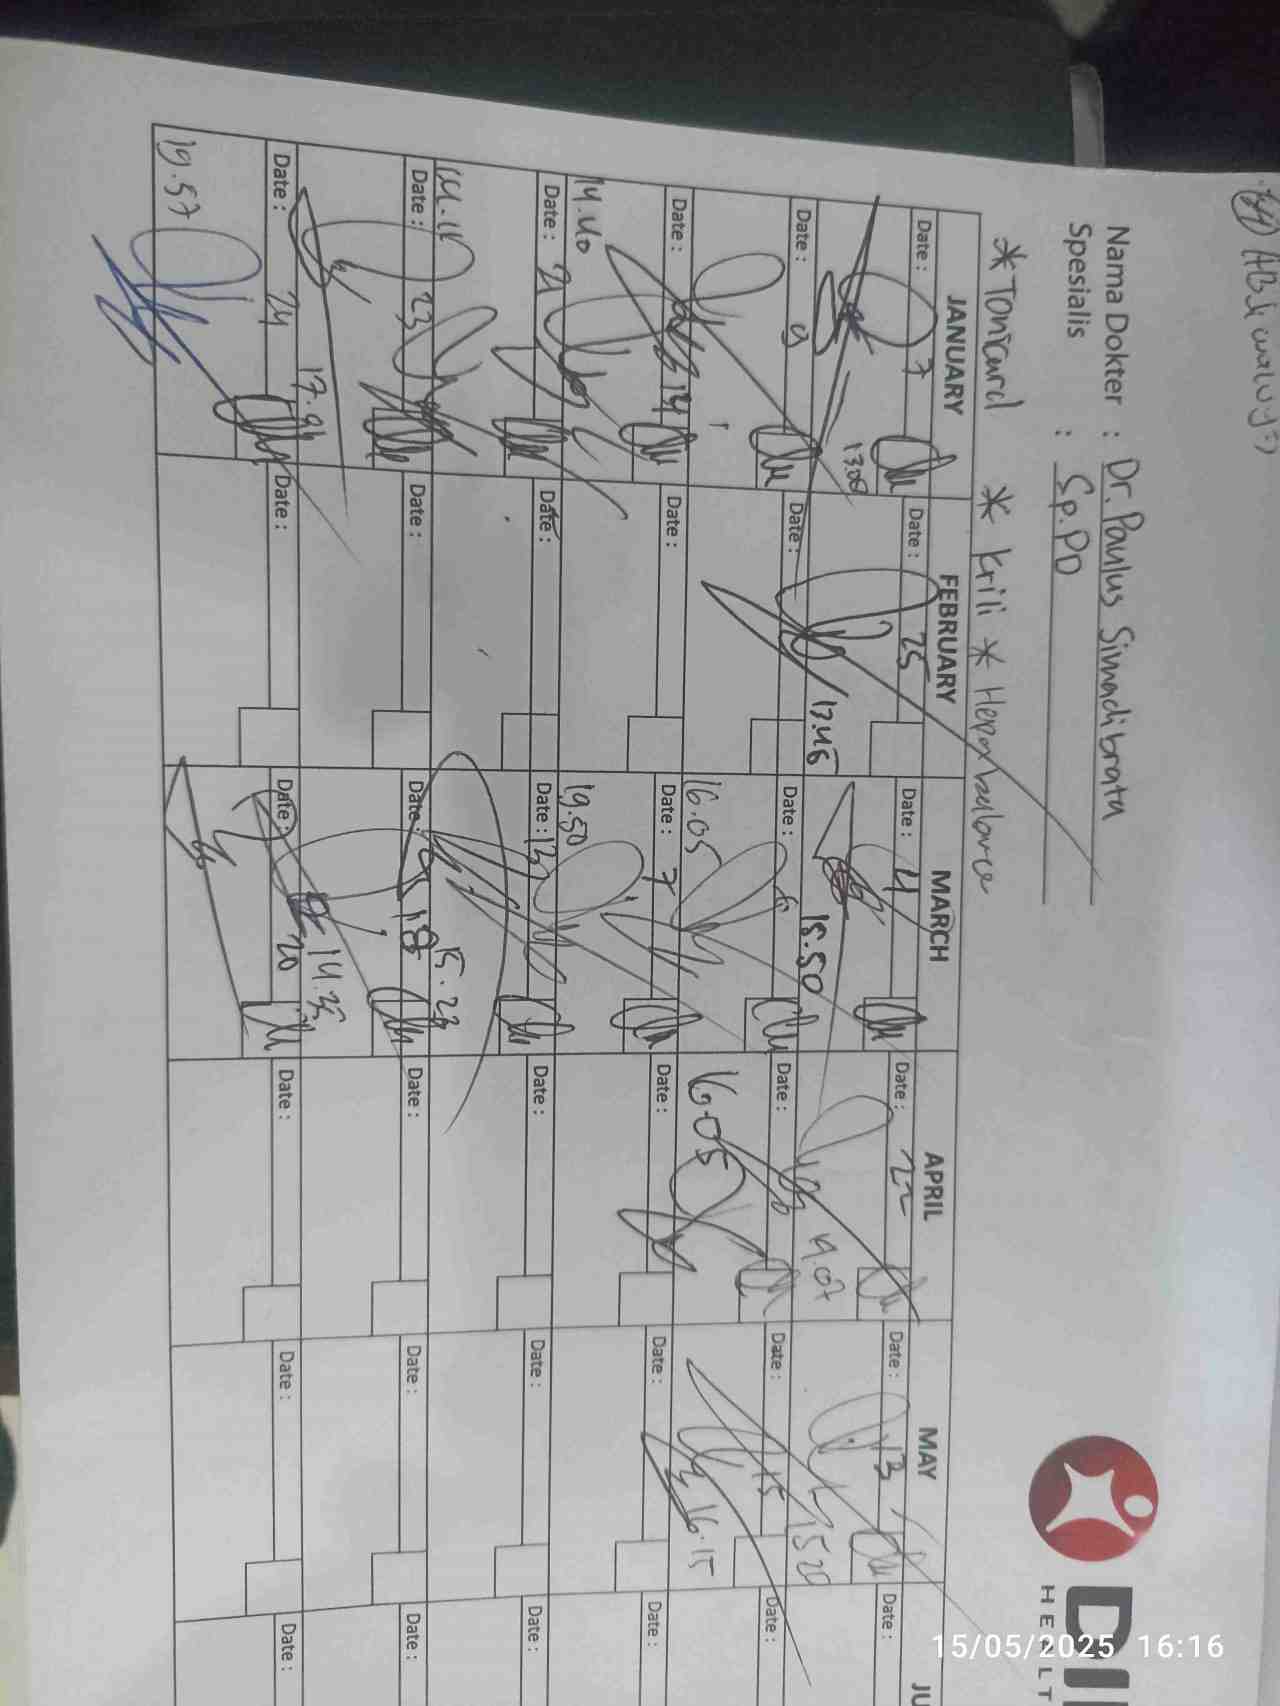 Nama Dokter : Dr. Paulus Simadibrata
Spesialis : Sp.PD
DI
HEALT
* Tonicard * Krili * Hepaxbalance
JANUARY FEBRUARY MARCH APRIL MAY JU
Date : 7 Date : 25 Date : 4 Date : 22 Date : 13 Date :
13.08 13.45 18.50 19.07 1520
Date : 9 Date : Date : 6 Date : Date : 15 Date :
16.05 16.05 16.15
Date : 14 Date : Date : 7 Date : Date : Date :
14.40 19.50
Date : 21 Date : Date : 13 Date : Date : Date :
14.11 15.23
Date : 23 Date : Date : 18 Date : Date : Date :
14.35
Date : 24 Date : Date : 20 Date : Date : Date :
19.57
15/05/2025 16:16